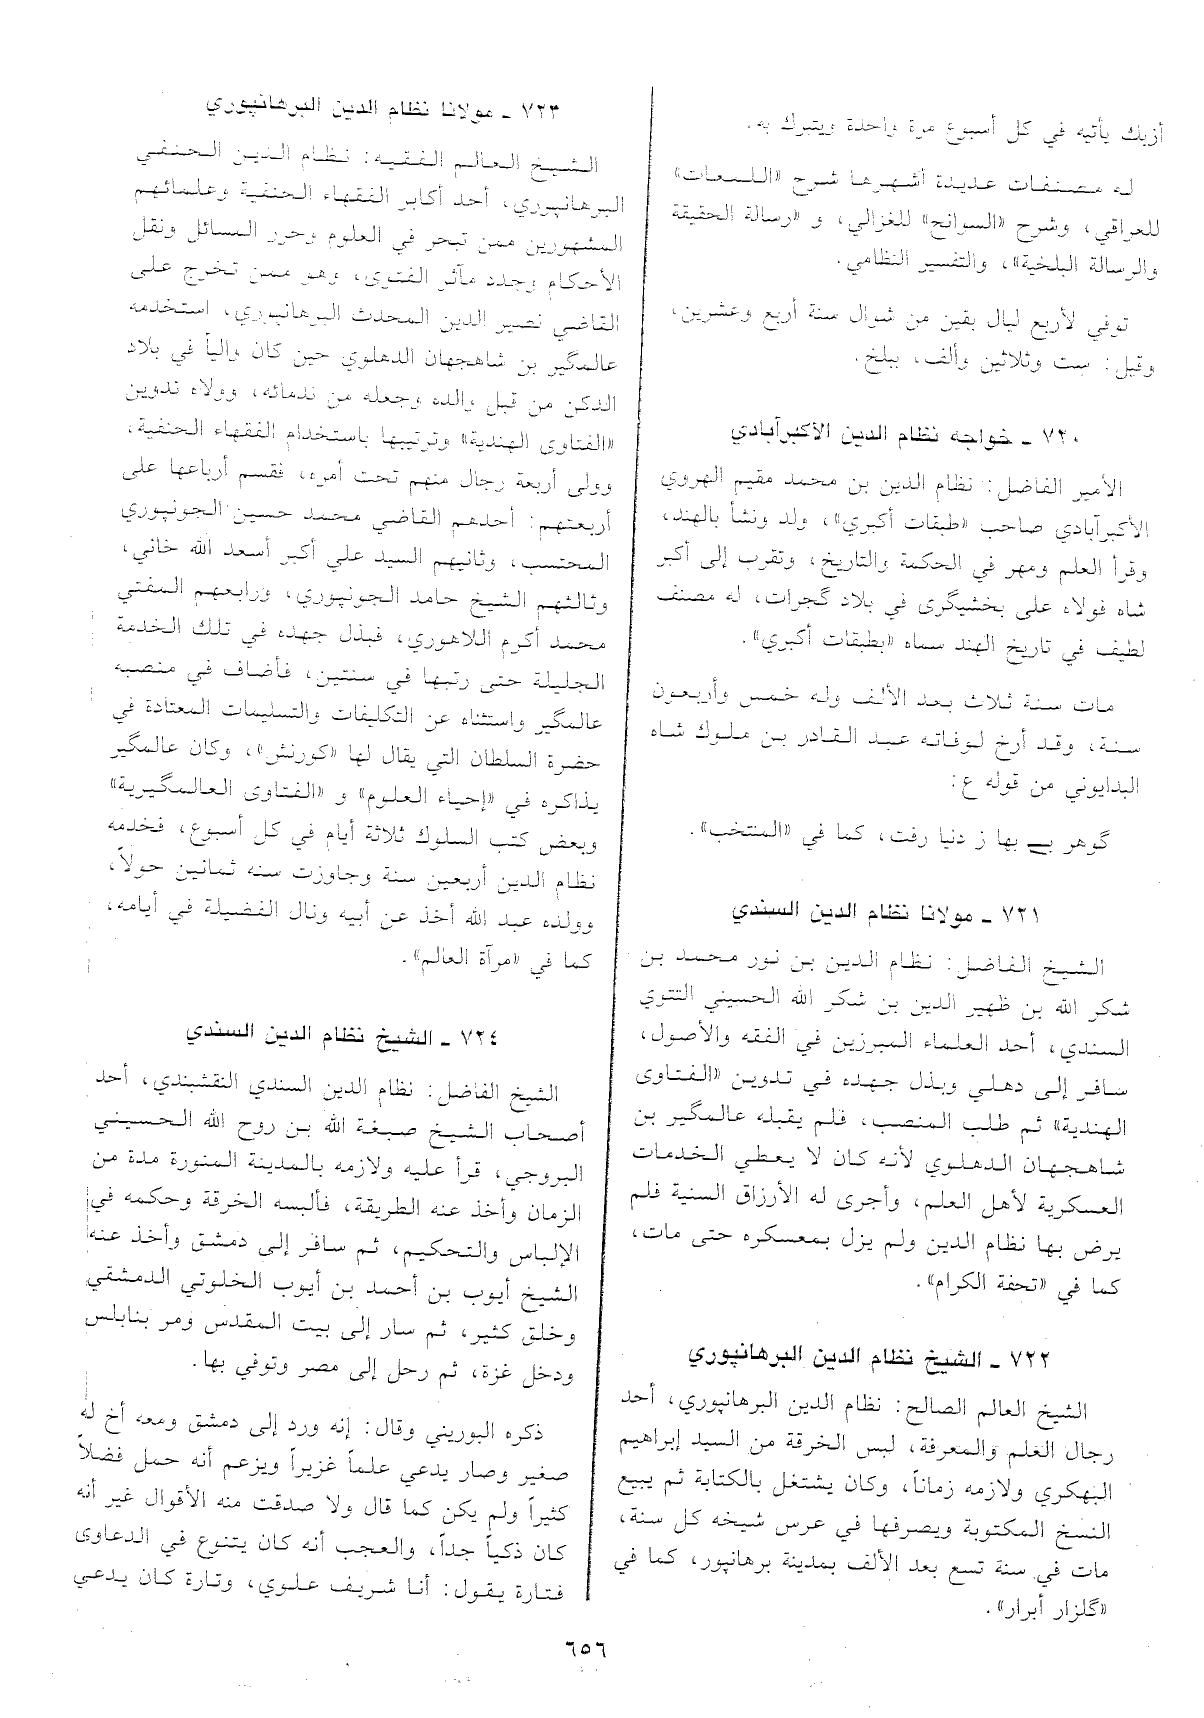 أزبك يأتيه في كل أسبوع مرة واحدة ويتبرك به.
له مصنفات عديدة أشهرها شرح «اللمعات»
للعراقي، وشرح «السوانح» للغزالي، و «رسالة الحقيقة
والرسالة البلخية»، والتفسير النظامي.
توفي لأربع ليال بقين من شوال سنة أربع وعشرين،
وقيل: ست وثلاثين وألف، ببلخ.
٧٢٠ ـ خواجه نظام الدين الأكبرآبادي
الأمير الفاضل: نظام الدين بن محمد مقيم الهروي
الأكبرآبادي صاحب «طبقات أكبري»، ولد ونشأ بالهند،
وقرأ العلم ومهر في الحكمة والتاريخ، وتقرب إلى أكبر
شاه فولاه على بخشيگرى في بلاد گجرات، له مصنف
لطيف في تاريخ الهند سماه «بطبقات أكبري».
مات سنة ثلاث بعد الألف وله خمس وأربعون
سنة، وقد أرخ لوفاته عبد القادر بن ملوك شاه
البدايوني من قوله ع:
گوهر بے بها ز دنيا رفت، كما في «المنتخب».
٧٢١ ـ مولانا نظام الدين السندي
الشيخ الفاضل: نظام الدين بن نور محمد بن
شكر الله بن ظهير الدين بن شكر الله الحسيني التتوي
السندي، أحد العلماء المبرزين في الفقه والأصول،
سافر إلى دهلي وبذل جهده في تدوين «الفتاوى
الهندية» ثم طلب المنصب، فلم يقبله عالمگير بن
شاهجهان الدهلوي لأنه كان لا يعطي الخدمات
العسكرية لأهل العلم، وأجرى له الأرزاق السنية فلم
يرض بها نظام الدين ولم يزل بمعسكره حتى مات،
كما في «تحفة الكرام».
٧٢٢ ـ الشيخ نظام الدين البرهانپوري
الشيخ العالم الصالح: نظام الدين البرهانپوري، أحد
رجال العلم والمعرفة، لبس الخرقة من السيد إبراهيم
البهكري ولازمه زماناً، وكان يشتغل بالكتابة ثم يبيع
النسخ المكتوبة ويصرفها في عرس شيخه كل سنة،
مات في سنة تسع بعد الألف بمدينة برهانپور، كما في
«گلزار أبرار».
٧٢٣ ـ مولانا نظام الدين البرهانپوري
الشيخ العالم الفقيه: نظام الدين الحنفي
البرهانپوري، أحد أكابر الفقهاء الحنفية وعلمائهم
المشهورين ممن تبحر في العلوم وحرر المسائل ونقل
الأحكام وجدد مآثر الفتوى، وهو ممن تخرج على
القاضي نصير الدين المحدث البرهانپوري، استخدمه
عالمگير بن شاهجهان الدهلوي حين كان والياً في بلاد
الدكن من قبل والده وجعله من ندمائه، وولاه تدوين
«الفتاوى الهندية» وترتيبها باستخدام الفقهاء الحنفية،
وولى أربعة رجال منهم تحت أمره، فقسم أرباعها على
أربعتهم: أحدهم القاضي محمد حسين الجونپوري
المحتسب، وثانيهم السيد علي أكبر أسعد الله خاني،
وثالثهم الشيخ حامد الجونپوري، ورابعهم المفتي
محمد أكرم اللاهوري، فبذل جهده في تلك الخدمة
الجليلة حتى رتبها في سنتين، فأضاف في منصبه
عالمگير واستثناه عن التكليفات والتسليمات المعتادة في
حضرة السلطان التي يقال لها «كورنش»، وكان عالمگير
يذاكره في «إحياء العلوم» و «الفتاوى العالمگيرية»
وبعض كتب السلوك ثلاثة أيام في كل أسبوع، فخدمه
نظام الدين أربعين سنة وجاوزت سنه ثمانين حولاً،
وولده عبد الله أخذ عن أبيه ونال الفضيلة في أيامه،
كما في «مرآة العالم».
٧٢٤ ـ الشيخ نظام الدين السندي
الشيخ الفاضل: نظام الدين السندي النقشبندي، أحد
أصحاب الشيخ صبغة الله بن روح الله الحسيني
البروجي، قرأ عليه ولازمه بالمدينة المنورة مدة من
الزمان وأخذ عنه الطريقة، فألبسه الخرقة وحكمه في
الإلباس والتحكيم، ثم سافر إلى دمشق وأخذ عنه
الشيخ أيوب بن أحمد بن أيوب الخلوتي الدمشقي
وخلق كثير، ثم سار إلى بيت المقدس ومر بنابلس
ودخل غزة، ثم رحل إلى مصر وتوفي بها.
ذكره البوريني وقال: إنه ورد إلى دمشق ومعه أخ له
صغير وصار يدعي علماً غزيراً ويزعم أنه حمل فضلاً
كثيراً ولم يكن كما قال ولا صدقت منه الأقوال غير أنه
كان ذكياً جداً، والعجب أنه كان يتنوع في الدعاوى
فتارة يقول: أنا شريف علوي، وتارة كان يدعي
٦٥٦